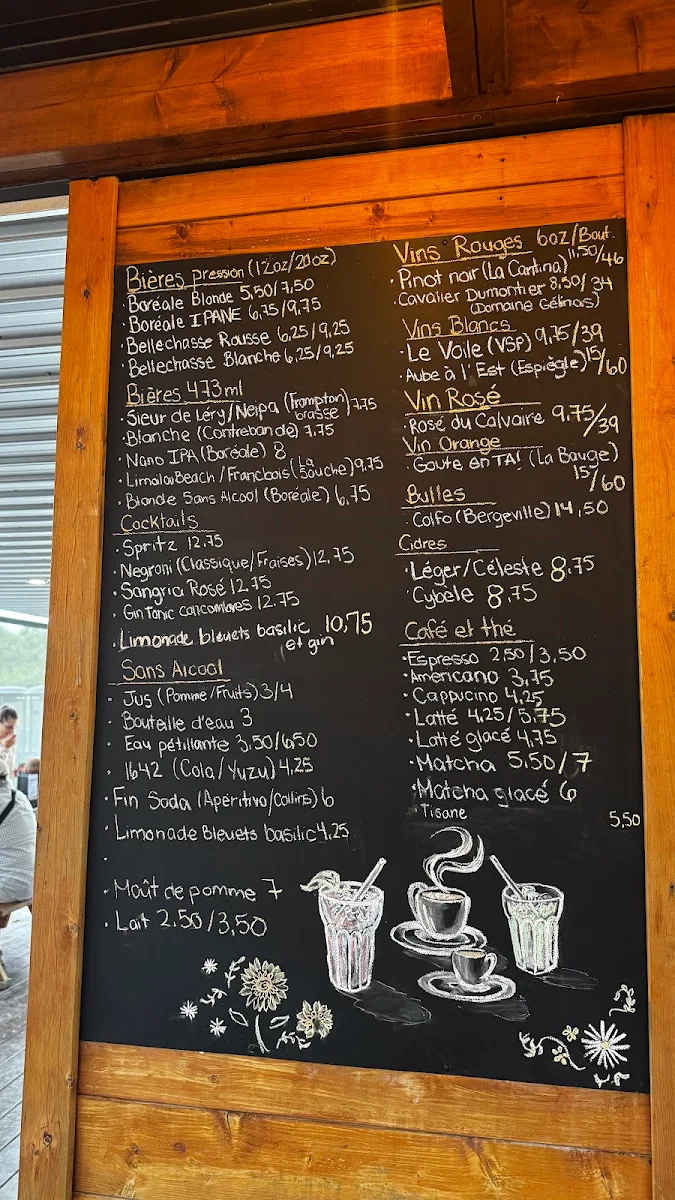 Bières pression (12oz/20oz)
· Boréale Blonde 5,50/7,50
· Boréale IPANE 6,75/9,75
· Bellechasse Rousse 6,25/9,25
· Bellechasse Blanche 6,25/9,25
Bières 473ml
· Sieur de Léry/Neipa (Frampton brasse) 7.75
· Blanche (Contrebande) 7.75
· Nano IPA (Boréale) 8
· Limoilou Beach / Francbois (La Souche) 9,75
· Blonde Sans Alcool (Boréale) 6,75
Cocktails
· Spritz 12.75
· Negroni (Classique/Fraises) 12,75
· Sangria Rosé 12.75
· Gin Tonic concombres 12.75
· Limonade bleuets basilic et gin 10,75
Sans Alcool
· Jus (Pomme/Fruits) 3/4
· Bouteille d'eau 3
· Eau pétillante 3,50/6,50
· 1642 (Cola/Yuzu) 4,25
· Fin Soda (Apéritivo/Collins) 6
· Limonade Bleuets basilic 4,25
·
· Moût de pomme 7
· Lait 2.50/3,50
Vins Rouges 6oz/Bout.
· Pinot noir (La Cantina) 11,50/46
· Cavalier Dumortier 8,50/34
(Domaine Gélinas)
Vins Blancs
· Le Voile (VSP) 9,75/39
· Aube à l'Est (Espiègle) 15/60
Vin Rosé
· Rosé du Calvaire 9,75/39
Vin Orange
· Goute en TA! (La Bauge)
15/60
Bulles
· Colfo (Bergeville) 14,50
Cidres
· Léger/Céleste 8.75
· Cybèle 8,75
Café et thé
· Espresso 2.50/3,50
· Americano 3,75
· Cappucino 4,25
· Latté 4,25/5,75
· Latté glacé 4,75
· Matcha 5.50/7
· Matcha glacé 6
· Tisane 5,50